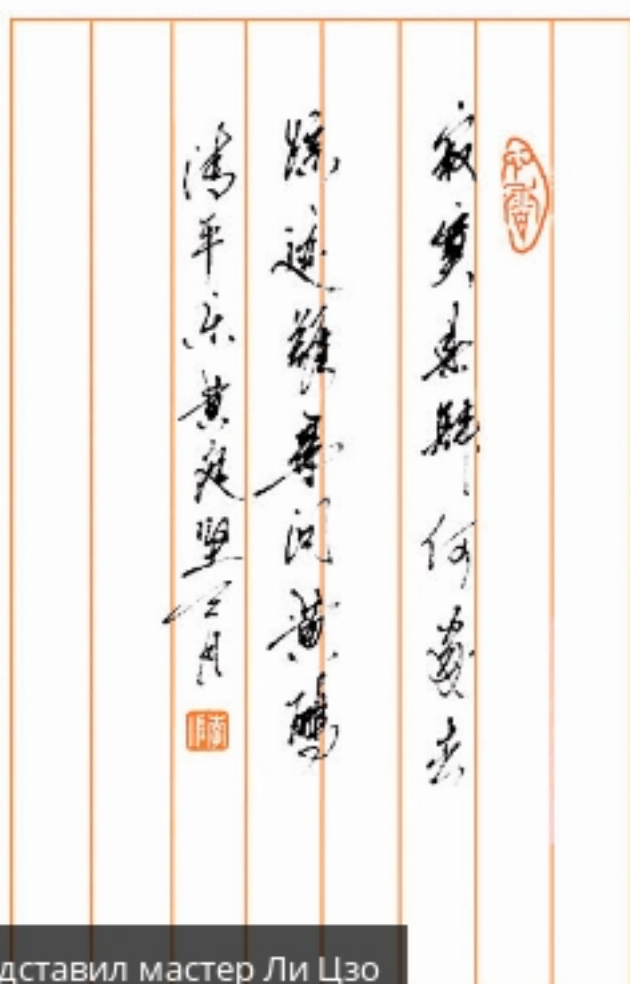 寂寞春歸何處去
踪迹難尋问黄鹂
清平乐黄庭坚
дставил мастер Ли Цзо